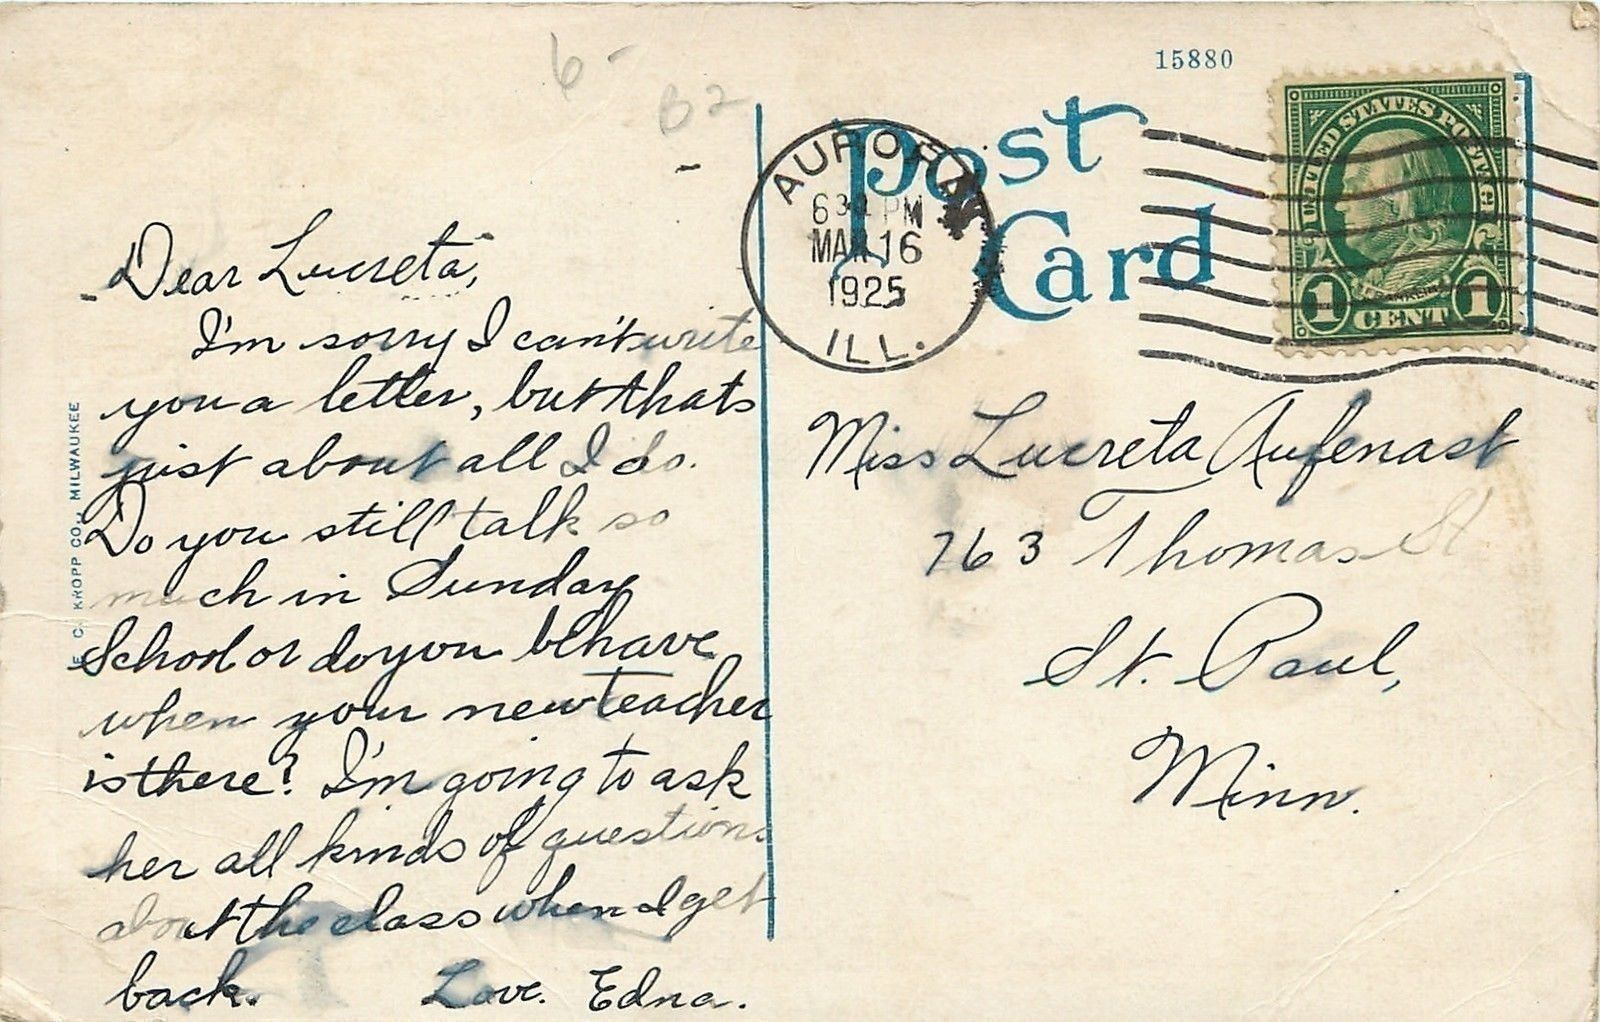 6-
B2
15880
Post
Card
AURORA
6 30 PM
MAR 16
1925
ILL.
UNITED STATES POSTAGE
FRANKLIN
1 CENT 1
E. C. KROPP CO., MILWAUKEE
Dear Lucreta,
I'm sorry I can't write
you a letter, but thats
just about all I do.
Do you still talk so
much in Sunday
School or do you behave
when your new teacher
is there? I'm going to ask
her all kinds of questions
about the class when I get
back. Love. Edna.
Miss Lucreta Aufenast
763 Thomas St
St. Paul,
Minn.